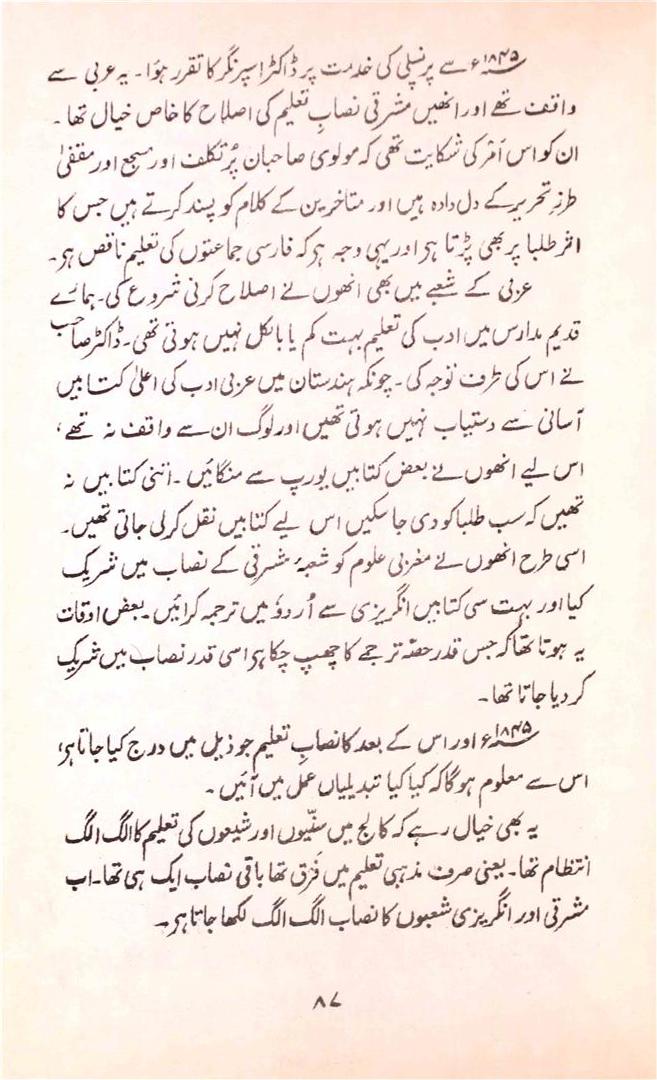 ۱۸۴۵ء سے پرنسپلی کی خدمت پر ڈاکٹر اسپرنگر کا تقرر ہؤا۔ یہ عربی سے
واقف تھے اور انھیں مشرقی نصابِ تعلیم کی اصلاح کا خاص خیال تھا۔
ان کو اس اَمر کی شکایت تھی کہ مولوی صاحبان پُرتکلف اور مسجع اور مقفیٰ
طرزِ تحریر کے دل دادہ ہیں اور متاخرین کے کلام کو پسند کرتے ہیں جس کا
اثر طلبا پر بھی پڑتا ہر اور یہی وجہ ہر کہ فارسی جماعتوں کی تعلیم ناقص ہر۔
عربی کے شعبے میں بھی انھوں نے اصلاح کرنی شروع کی۔ ہمارے
قدیم مدارس میں ادب کی تعلیم بہت کم یا بالکل نہیں ہوتی تھی۔ ڈاکٹر صاحب
نے اس کی طرف توجہ کی۔ چونکہ ہندستان میں عربی ادب کی اعلیٰ کتابیں
آسانی سے دستیاب نہیں ہوتی تھیں اور لوگ ان سے واقف نہ تھے،
اس لیے انھوں نے بعض کتابیں یورپ سے منگائیں۔ اتنی کتابیں نہ
تھیں کہ سب طلبا کو دی جا سکیں اس لیے کتابیں نقل کرلی جاتی تھیں۔
اسی طرح انھوں نے مغربی علوم کو شعبۂ مشرقی کے نصاب میں شریک
کیا اور بہت سی کتابیں انگریزی سے اُردوٗ میں ترجمہ کرائیں۔ بعض اوقات
یہ ہوتا تھا کہ جس قدر حصّہ ترجمے کا چھپ چکا ہر اسی قدر نصاب میں شریک
کر دیا جاتا تھا۔
۱۸۴۵ء اور اس کے بعد کا نصابِ تعلیم جو ذیل میں درج کیا جاتا ہر،
اس سے معلوم ہوگا کہ کیا کیا تبدیلیاں عمل میں آئیں۔
یہ بھی خیال رہے کہ کالج میں سنّیوں اور شیعوں کی تعلیم کا الگ الگ
انتظام تھا۔ یعنی صرف مذہبی تعلیم میں فَرق تھا باقی نصاب ایک ہی تھا۔ اب
مشرقی اور انگریزی شعبوں کا نصاب الگ الگ لکھا جاتا ہر۔
۸۷